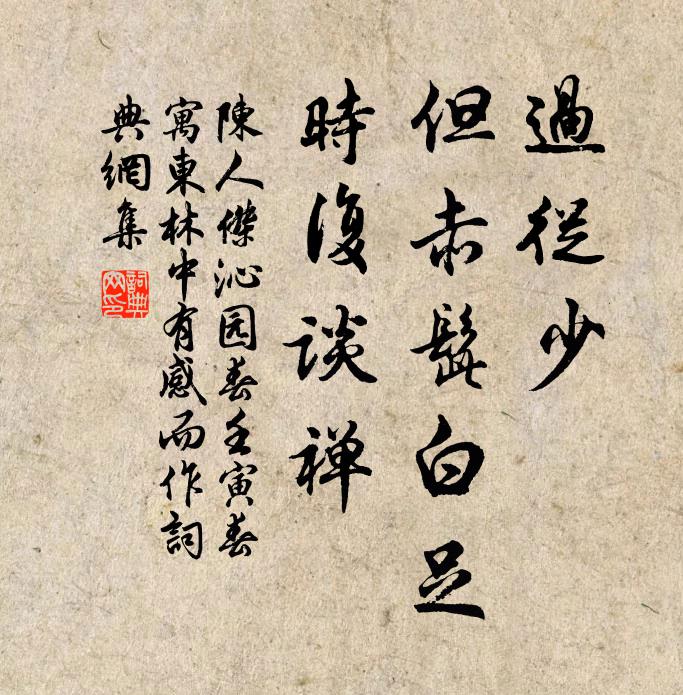 過從少
但赤髭白足
時復談禅
陳人傑沁园春壬寅春
寓東林中有感而作詞
典網集
詞典
网印